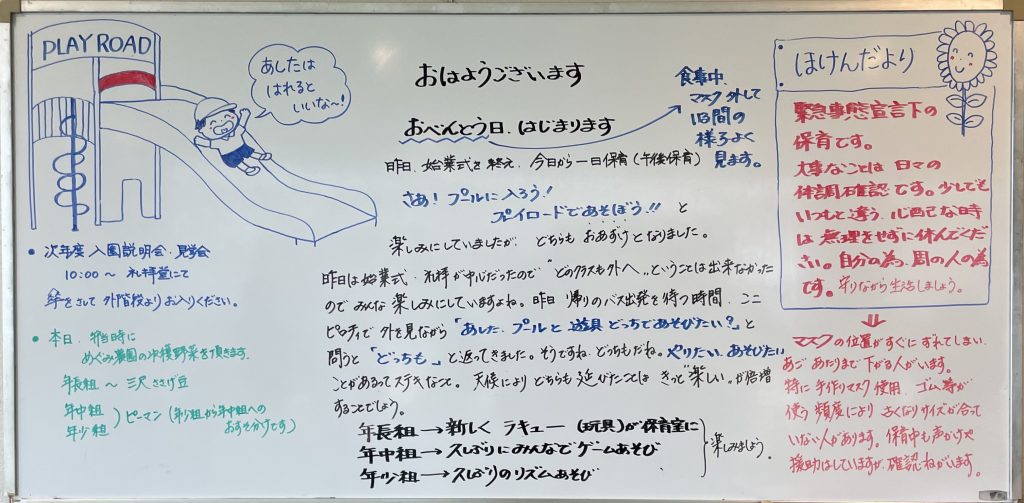 PLAY ROAD
あしたは
はれると
いいな〜!
おはようございます
おべんとう日、はじまります
食事中、
マスク外して
15分間の
様子よく
見ます。
昨日、始業式を終え、今日から一日保育(午後保育)
さあ!プールに入ろう!
プレイロードであそぼう!! と
楽しみにしていましたが どちらも おあずけとなりました。
昨日は始業式・礼拝が中心だったので "どのクラスも外へ"ということは出来なかった
のでみんな 楽しみにしていますよね。昨日 帰りのバス出発を待つ時間、ここ
ピロティで 外を見ながら「あした、プールと 遊具 どっちであそびたい?」と
問うと「どっちも」と返ってきました。そうですね、どっちもだね。やりたい、あそびたい
ことがあるってステキなこと。天候により どちらも 延びたことは きっと"楽しい"が倍増
することでしょう。
年長組→新しく ラキュー(玩具)が保育室に
年中組→久しぶりにみんなで ゲームあそび
年少組→久しぶりのリズムあそび
楽しみましょう。
• 次年度 入園説明会・見学会
10:00〜 礼拝堂にて
傘をさして 外階段よりお入りください。
• 本日、弁当時に
めぐみ農園の収穫野菜を頂きます。
年長組 〜 三尺ささげ豆
年中組
年少組
)ピーマン(年少組から年中組への
おすそ分けです)
ほけんだより
緊急事態宣言下の
保育です。
大事なことは 日々の
体調確認です。少しでも
いつもと違う、心配な時
は 無理をせずに休んでくだ
さい。自分の為、周りの人の為
です。守りながら生活しましょう。
マスクの位置がすぐに ずれてしまい、
あご あたりまで 下がる人がいます。
特に 手作りマスク使用、ゴム等が
使う 頻度により 古くなりサイズが合って
いない人があります。保育中も声かけや
援助はしていますが、確認ねがいます。